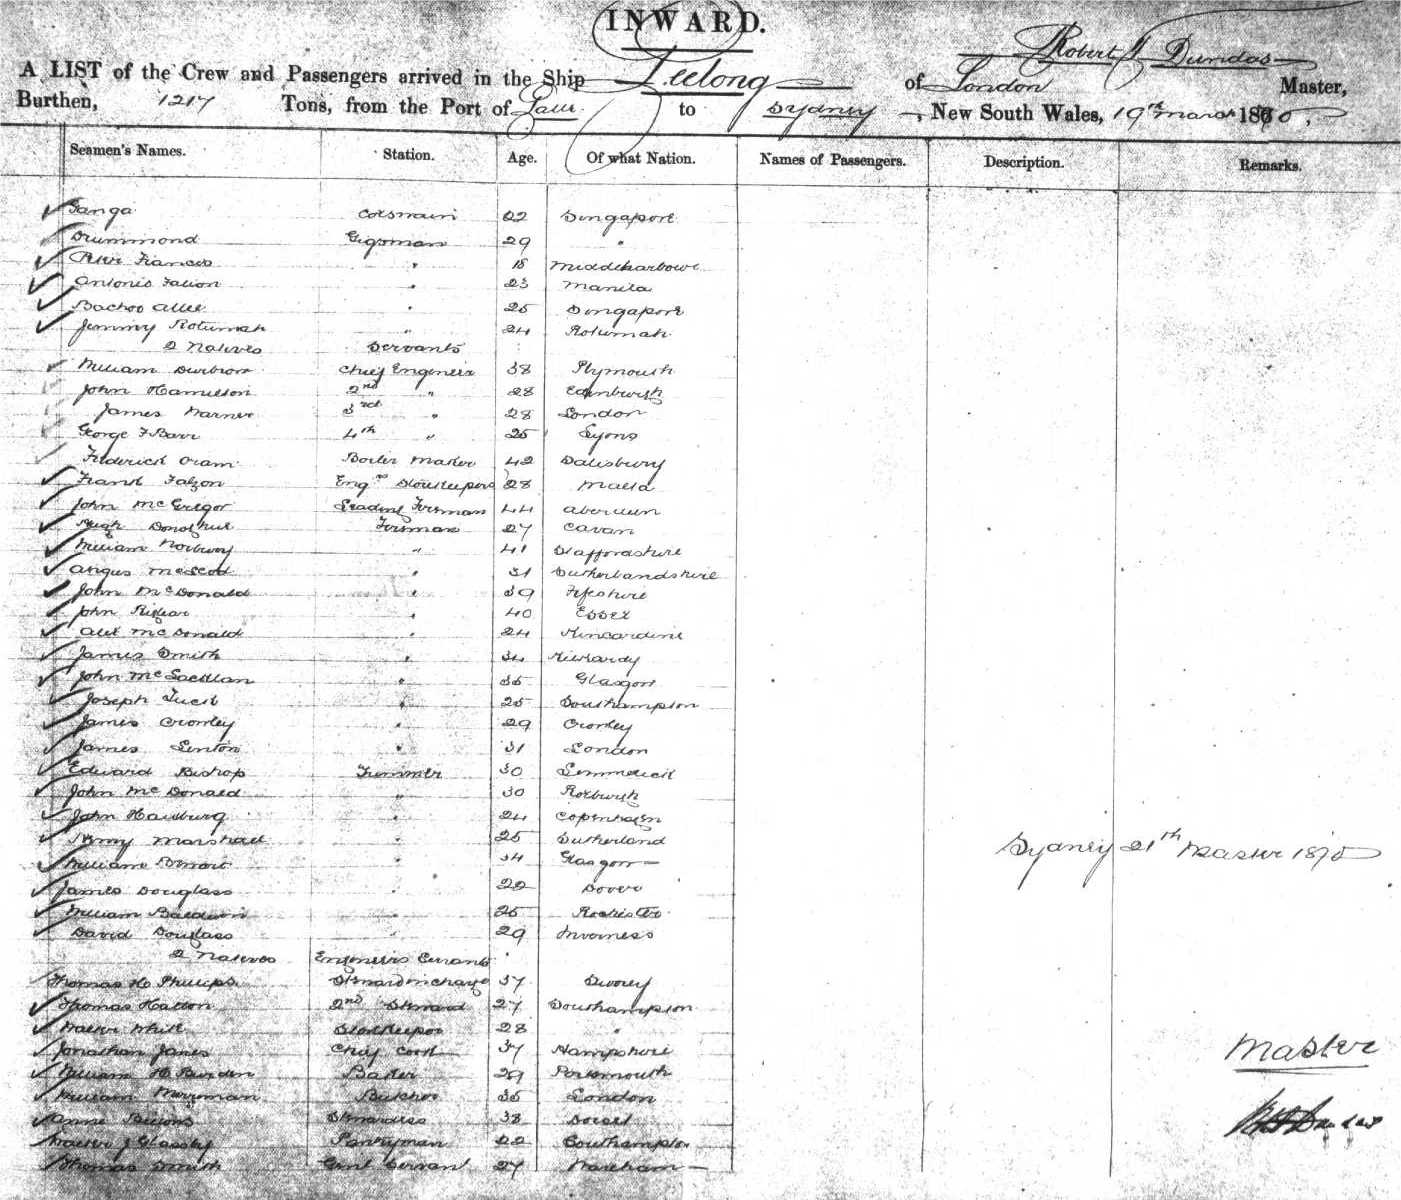 INWARD.
Robert J Dundas
A LIST of the Crew and Passengers arrived in the Ship Geelong of London Master,
Burthen, 1217 Tons, from the Port of Galle to Sydney, New South Wales, 19th March 1870,
Seamen's Names. Station. Age. Of what Nation. Names of Passengers. Description. Remarks.
Tanga Coxswain 22 Singapore
Drummond Gigsman 29 "
Peter Frances " 18
Antonio " 23 Manila
Bachoo Allee " 25 Singapore
Jimmy Rotumah " 24 Rotumah
2 Natives Servants
William Chief Engineer 38 Plymouth
John Hamilton 2nd " 28 Edinburgh
James Warner 3rd " 28 London
George F Barr 4th " 25 Lyons
Frederick Oram Boiler Maker 42 Salisbury
Frank Falzon Engrs Storekeeper 28 Malta
John McGregor Leading Fireman 44 Aberdeen
Hugh Donoghue Fireman 27 Cavan
William Norbury " 41 Staffordshire
Angus McLeod " 31 Sutherlandshire
John McDonald " 39 Fifeshire
John " 40 Essex
Alex McDonald " 24 Kincardine
James Smith " 34
John McLachlan " 35 Glasgow
Joseph Tuck " 25 Southampton
James Crowley " 29 Crowley
James Lenton " 31 London
Edward Bishop Trimmer 30 Limmerick
John McDonald " 30 Roxburgh
John " 24 Copenhagen
Henry Marshall " 25 Sutherland
William " 34 Glasgow
James Douglass " 22 Dover
William Baldwin " 25 Rochester
David Douglass " 29 Inverness
2 Natives Engineers Servants
Thomas H Phillips Steward in charge 37
Thomas Hatton 2nd Steward 27 Southampton
Walter White Storekeeper 28 "
Jonathan Janes Chief Cook 37 Hampshire
William H Burden Baker 29 Portsmouth
William Merriman Butcher 35 London
Anne Stewardess 38 Dorset
Walter J Glassby Pantryman 22 Southampton
Thomas Smith Genl Servant 27 Wareham
Sydney 21th Master 1870
Master